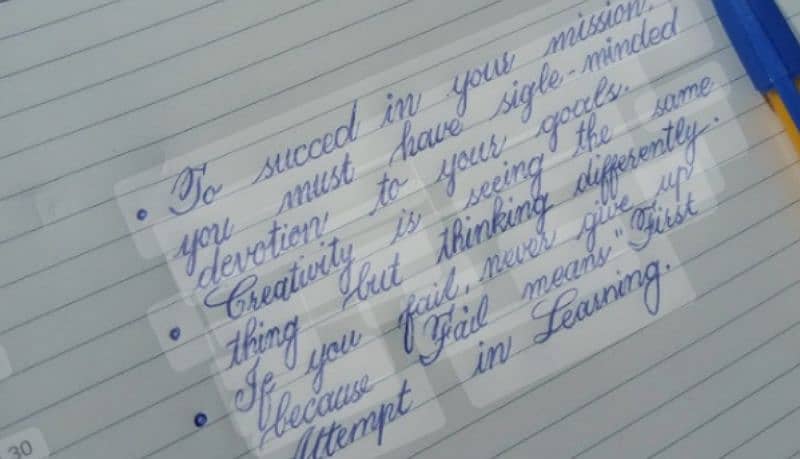 • To succed in your mission.
you must have sigle-minded
devotion to your goals.
• Creativity is seeing the same
thing but thinking differently.
• If you fail, never give up
because Fail means "First
Attempt in Learning.
30